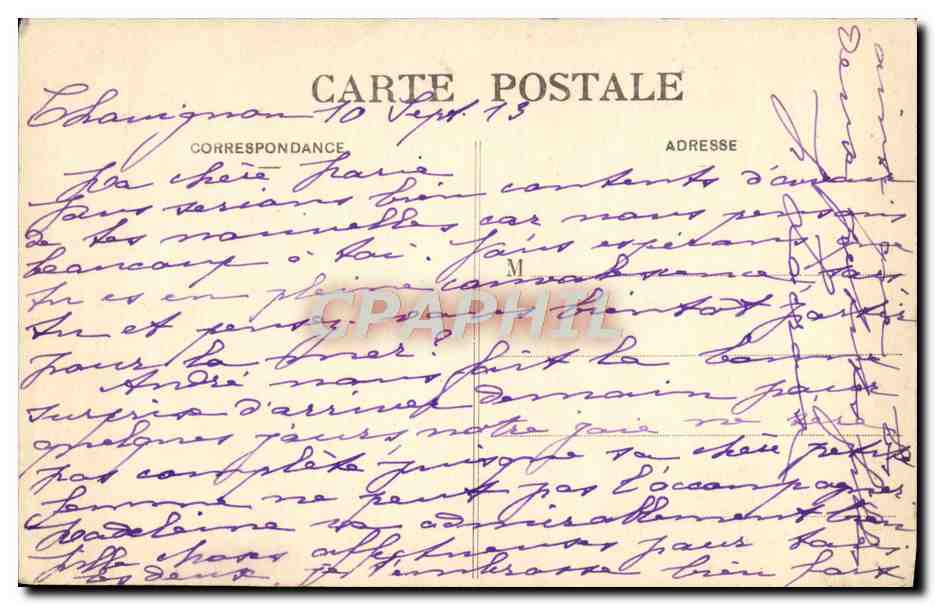 CARTE POSTALE
Chavignon 10 Sept. 13
CORRESPONDANCE
ADRESSE
Ma chère Marie
Nous serions bien contents d'avoir
de tes nouvelles car nous pensons
beaucoup à toi. Nous espérons que
M
tu es en pleine convalescence
tu et pensez vous bientôt partir
pour la mer?
André nous fait la bonne
surprise d'arriver demain pour
quelques jours notre joie ne sera
pas complète puisque sa chère petite
femme ne peut pas l'accompagner.
Madeleine va admirablement bien
Mille choses affectueuses pour tous
les deux, je t'embrasse bien fort
CPAPHIL